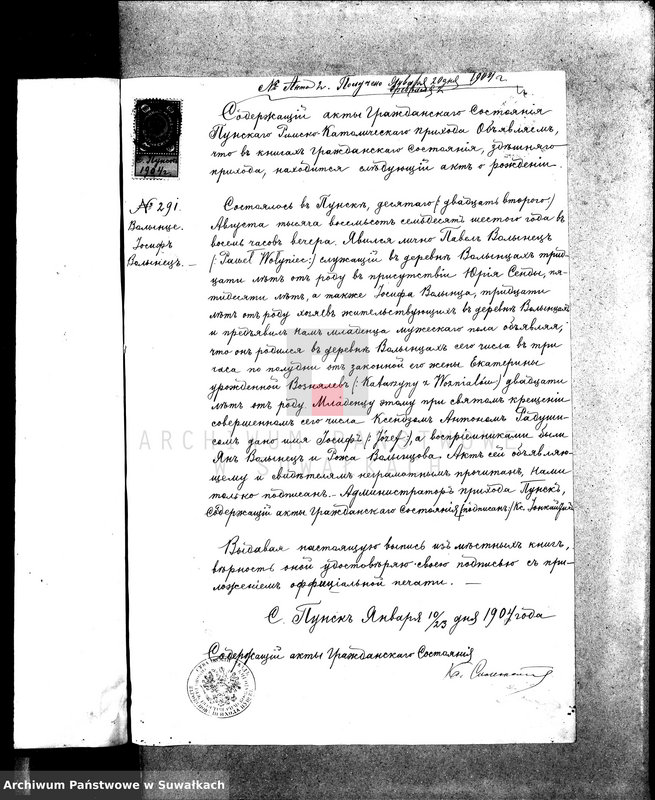 № Анна 2. Получено Января 20 дня 1904 г.
Февраля 2
Содержащій акты Гражданскаго Состоянія
Пунскаго Римско-Католическаго прихода Объявляемъ,
что въ книгахъ гражданскаго состоянія, здѣшняго
прихода, находится слѣдующій актъ о рожденіи.
С. Пунскъ
1904 г.
№ 291.
Волынце.
Іосифъ
Волынецъ. —
Состоялось въ Пунскѣ, десятаго (: двадцать второго:)
Августа тысяча восемьсотъ семьдесятъ шестого года въ
восемь часовъ вечера. Явился лично Павелъ Волынецъ
(: Paweł Wołyniec:) служащій въ деревнѣ Волынцахъ трид-
цати лѣтъ отъ роду въ присутствіи Юрія Сенды, пя-
тидесяти лѣтъ, а также Іосифа Волынца, тридцати
лѣтъ отъ роду хозяевъ жительствующихъ въ деревнѣ Волынцахъ
и предъявилъ Намъ младенца мужескаго пола объявляя,
что онъ родился въ деревнѣ Волынцахъ сего числа въ три
часа по полудни отъ законной его жены Екатерины
урожденной Вознялевъ (: Katarzyny z Woźnialów:) двадцати
лѣтъ отъ роду. Младенцу этому при святомъ крещеніи
совершенномъ сего числа Ксендзомъ Антономъ Радуши-
сомъ дано имя Іосифъ (: Józef:), а воспріемниками были
Янъ Волынецъ и Рожа Волынцова. Актъ сей объявляю-
щему и свидѣтелямъ неграмотнымъ прочитанъ, Нами
только подписанъ. — Администраторъ прихода Пунскъ,
Содержащій акты Гражданскаго Состоянія (подписанъ:) Кс. Іонкайтисъ
Выдавая настоящую выпись изъ мѣстныхъ книгъ,
вѣрность оной удостовѣряю своею подписью съ при-
ложеніемъ оффиціальной печати. —
С. Пунскъ Января 10/23 дня 1904 года
Содержащій акты Гражданскаго Состоянія
Кс.
ARCHIWUM PAŃSTWOWE
W SUWAŁKACH
Archiwum Państwowe w Suwałkach